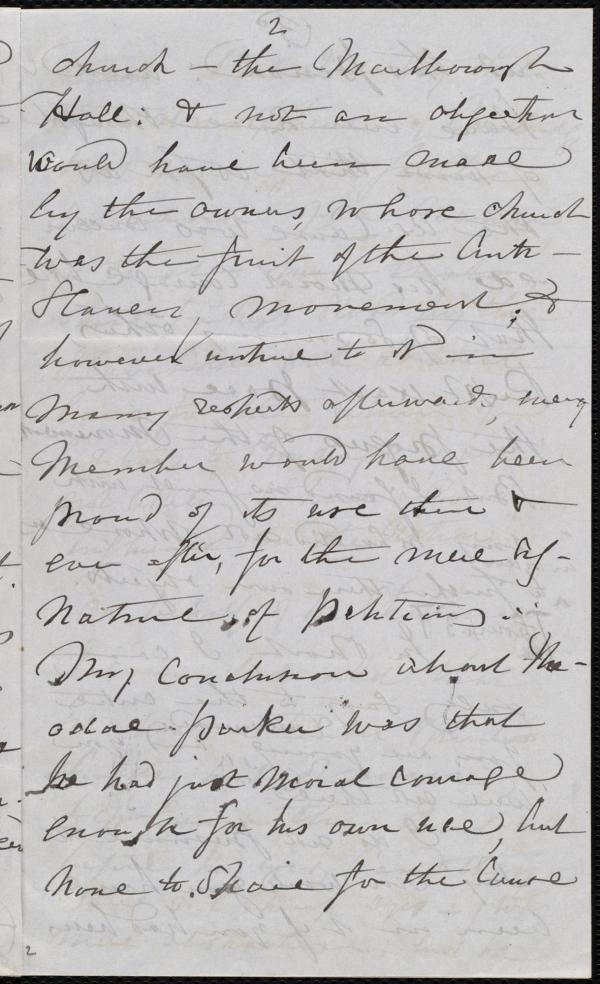 2
church – the Marlborough
Hall: & not an objection
would have been made
by the owners, whose church
was the fruit of the Anti-
Slavery movement; &
however untrue to it in
many respects afterward, every
member would have been
proud of its use then &
ever after, for the mere sig-
nature of petitions.
My conclusion about The-
odore Parker was that
he had just moral courage
enough for his own use, but
none to spare for the Cause
2